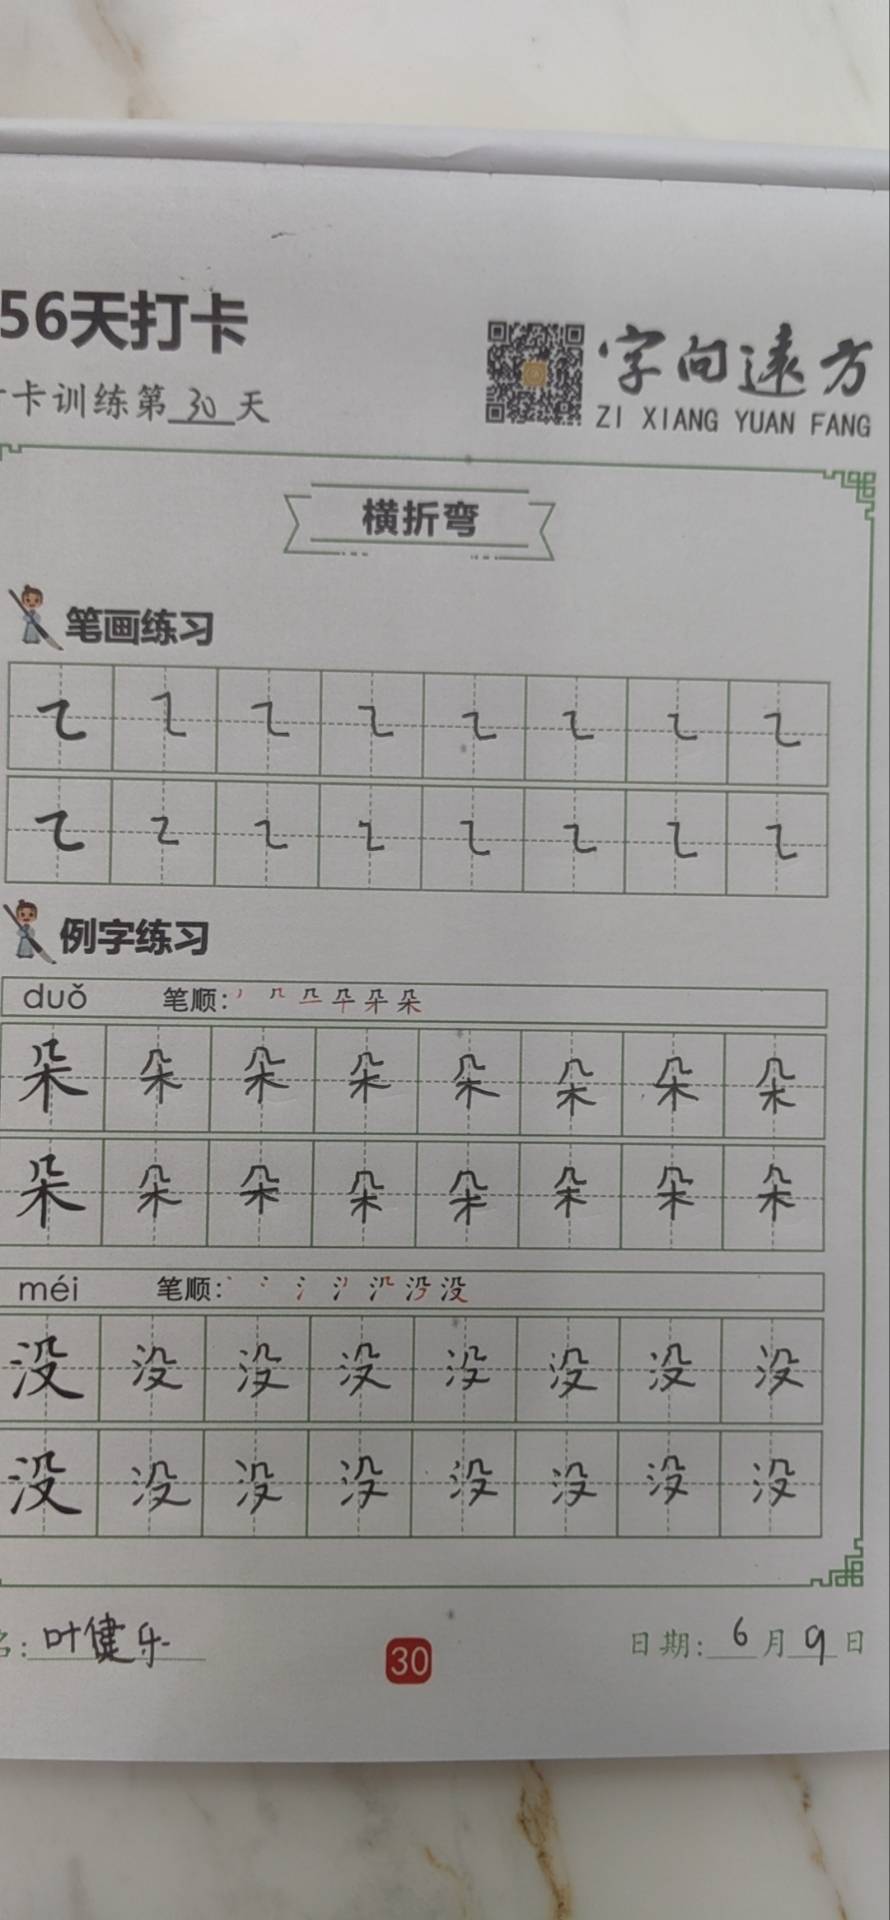 56天打卡
卡训练第30天
字向远方
ZI XIANG YUAN FANG
横折弯
笔画练习
㇍ ㇍ ㇍ ㇍ ㇍ ㇍ ㇍ ㇍
㇍ ㇍ ㇍ ㇍ ㇍ ㇍ ㇍ ㇍
例字练习
duǒ 笔顺:
朵 朵 朵 朵 朵 朵 朵 朵
朵 朵 朵 朵 朵 朵 朵 朵
méi 笔顺:
没 没 没 没 没 没 没 没
没 没 没 没 没 没 没 没
名:叶健乐
30
日期:6月9日